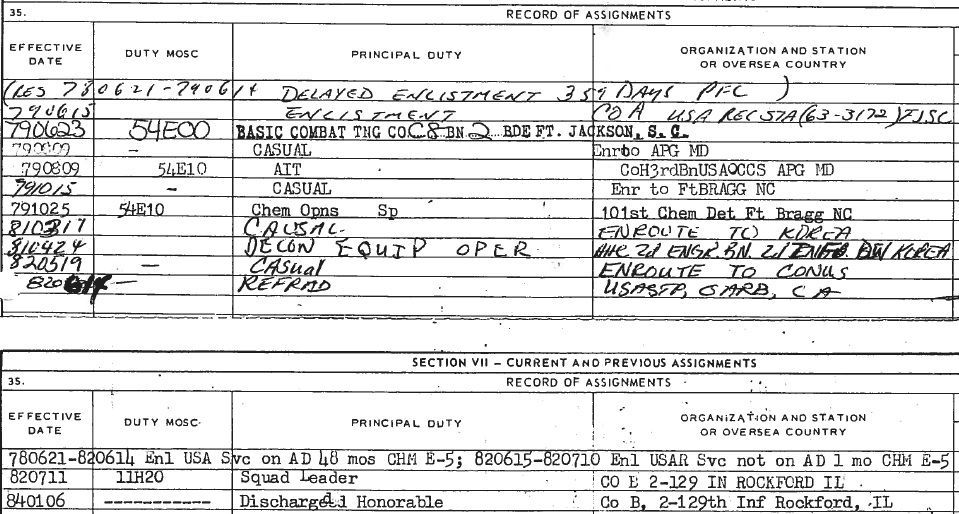 35. RECORD OF ASSIGNMENTS
EFFECTIVE DATE DUTY MOSC PRINCIPAL DUTY ORGANIZATION AND STATION OR OVERSEA COUNTRY
(RES 780621-790614 DELAYED ENLISTMENT 359 DAYS PFC )
790615 ENLISTMENT CO A USA RECSTA (63-3172) FJSC
790623 54E00 BASIC COMBAT TNG CO C 8 BN 2 BDE FT. JACKSON, S. C.
790809 - CASUAL Enrto APG MD
790809 54E10 AIT CoH3rdBnUSAOCCS APG MD
791015 - CASUAL Enr to FtBRAGG NC
791025 54E10 Chem Opns Sp 101st Chem Det Ft Bragg NC
810317 CAUSAL ENROUTE TO KOREA
810424 DECON EQUIP OPER HHC 2d ENGR BN. 2d KOREA
820519 — CASual ENROUTE TO CONUS
820614 — REFRAD USASTP, OARB, CA
SECTION VII - CURRENT AND PREVIOUS ASSIGNMENTS
35. RECORD OF ASSIGNMENTS
EFFECTIVE DATE DUTY MOSC PRINCIPAL DUTY ORGANIZATION AND STATION OR OVERSEA COUNTRY
780621-820614 Enl USA Svc on AD 48 mos CHM E-5; 820615-820710 Enl USAR Svc not on AD 1 mo CHM E-5
820711 11H20 Squad Leader CO E 2-129 IN ROCKFORD IL
840106 ----------- Discharged Honorable Co B, 2-129th Inf Rockford, IL